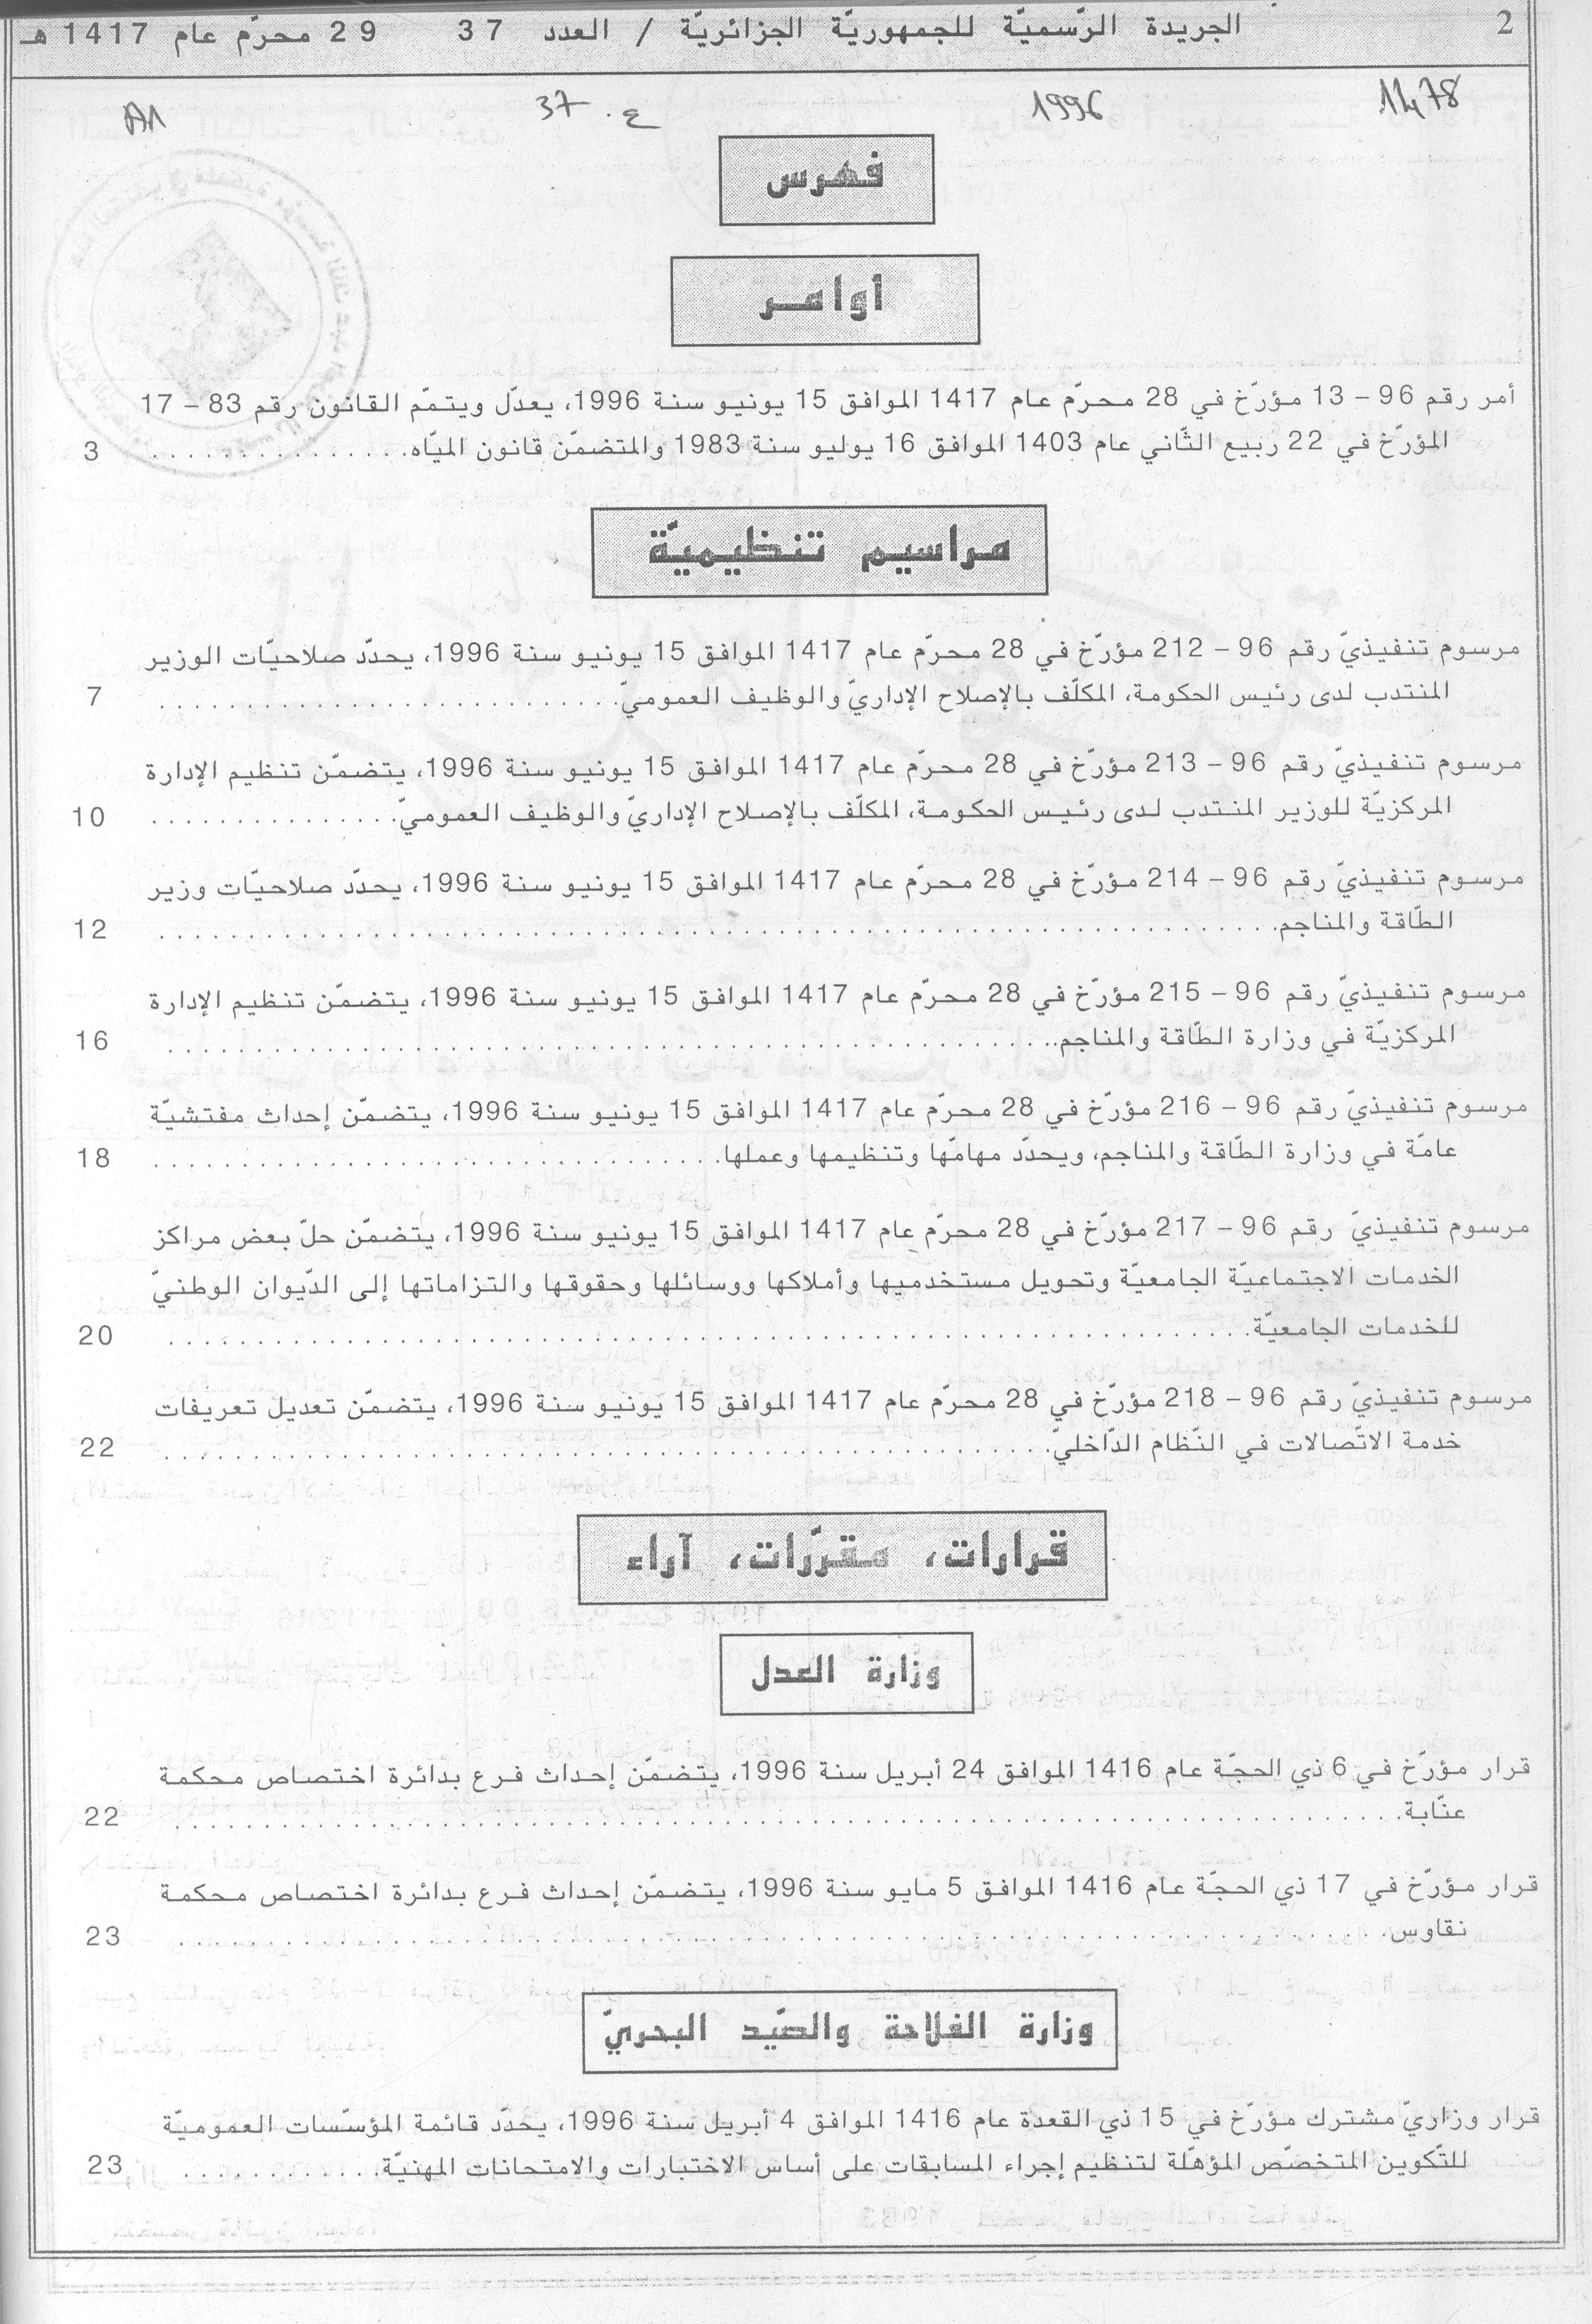 2 الجريدة الرّسميّة للجمهوريّة الجزائريّة / العدد 37 29 محرّم عام 1417 هـ
1996 ع. 37 A1
فهرس
أوامر
أمر رقم 96 - 13 مؤرّخ في 28 محرّم عام 1417 الموافق 15 يونيو سنة 1996، يعدّل ويتمّم القانون رقم 83 - 17
المؤرّخ في 22 ربيع الثّاني عام 1403 الموافق 16 يوليو سنة 1983 والمتضمّن قانون الميّاه. 3
مراسيم تنظيميّة
مرسوم تنفيذيّ رقم 96 - 212 مؤرّخ في 28 محرّم عام 1417 الموافق 15 يونيو سنة 1996، يحدّد صلاحيّات الوزير
المنتدب لدى رئيس الحكومة، المكلّف بالإصلاح الإداريّ والوظيف العموميّ. 7
مرسوم تنفيذيّ رقم 96 - 213 مؤرّخ في 28 محرّم عام 1417 الموافق 15 يونيو سنة 1996، يتضمّن تنظيم الإدارة
المركزيّة للوزير المنتدب لدى رئيس الحكومة، المكلّف بالإصلاح الإداريّ والوظيف العموميّ. 10
مرسوم تنفيذيّ رقم 96 - 214 مؤرّخ في 28 محرّم عام 1417 الموافق 15 يونيو سنة 1996، يحدّد صلاحيّات وزير
الطّاقة والمناجم. 12
مرسوم تنفيذيّ رقم 96 - 215 مؤرّخ في 28 محرّم عام 1417 الموافق 15 يونيو سنة 1996، يتضمّن تنظيم الإدارة
المركزيّة في وزارة الطّاقة والمناجم. 16
مرسوم تنفيذيّ رقم 96 - 216 مؤرّخ في 28 محرّم عام 1417 الموافق 15 يونيو سنة 1996، يتضمّن إحداث مفتشيّة
عامّة في وزارة الطّاقة والمناجم، ويحدّد مهامّها وتنظيمها وعملها. 18
مرسوم تنفيذيّ رقم 96 - 217 مؤرّخ في 28 محرّم عام 1417 الموافق 15 يونيو سنة 1996، يتضمّن حلّ بعض مراكز
الخدمات الاجتماعيّة الجامعيّة وتحويل مستخدميها وأملاكها ووسائلها وحقوقها والتزاماتها إلى الدّيوان الوطنيّ
للخدمات الجامعيّة. 20
مرسوم تنفيذيّ رقم 96 - 218 مؤرّخ في 28 محرّم عام 1417 الموافق 15 يونيو سنة 1996، يتضمّن تعديل تعريفات
خدمة الاتّصالات في النّظام الدّاخليّ. 22
قرارات، مقرّرات، آراء
وزارة العدل
قرار مؤرّخ في 6 ذي الحجّة عام 1416 الموافق 24 أبريل سنة 1996، يتضمّن إحداث فرع بدائرة اختصاص محكمة
عنّابة. 22
قرار مؤرّخ في 17 ذي الحجّة عام 1416 الموافق 5 مايو سنة 1996، يتضمّن إحداث فرع بدائرة اختصاص محكمة
نقاوس. 23
وزارة الفلاحة والصّيد البحريّ
قرار وزاريّ مشترك مؤرّخ في 15 ذي القعدة عام 1416 الموافق 4 أبريل سنة 1996، يحدّد قائمة المؤسّسات العموميّة
للتّكوين المتخصّص المؤهّلة لتنظيم إجراء المسابقات على أساس الاختبارات والامتحانات المهنيّة. 23